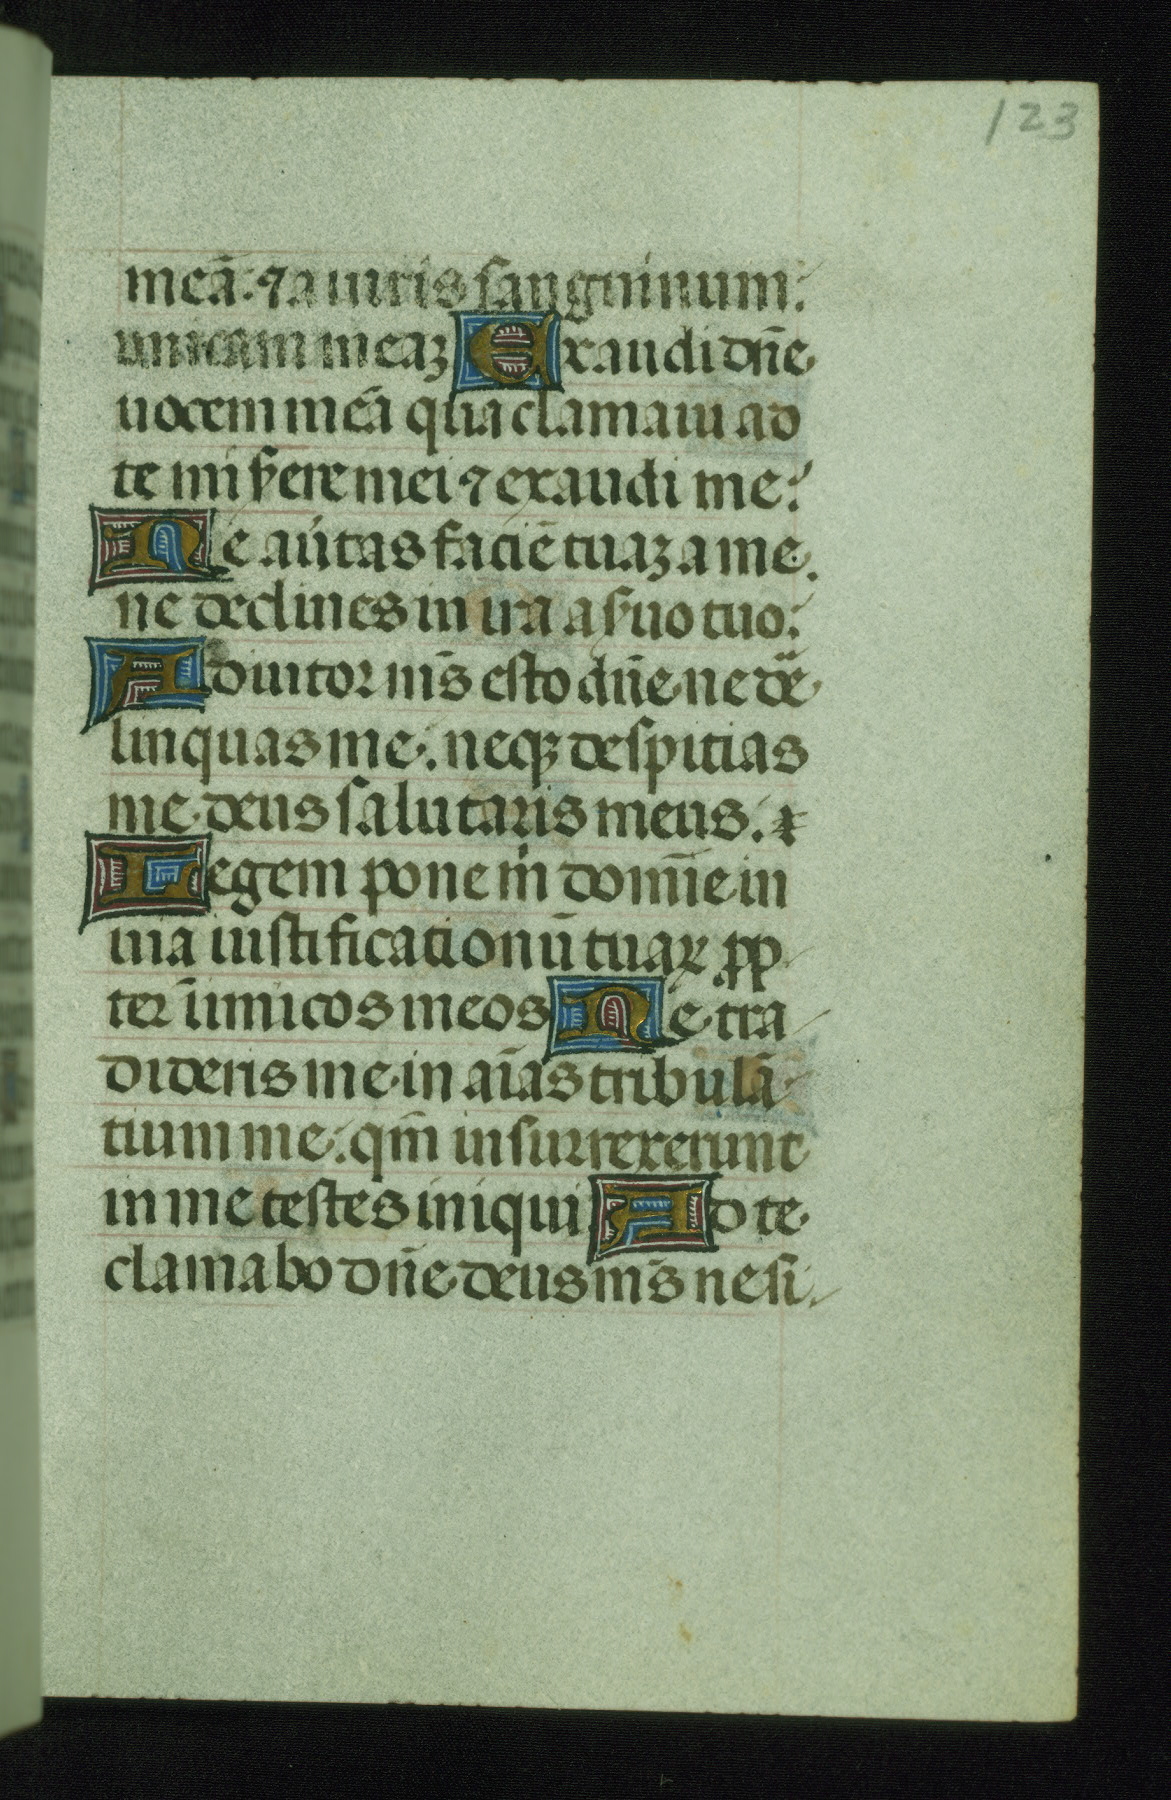 123
meā: ⁊ a uiris sanguinum:
unicam meaꝫ Exaudi dn̄e
uocem meā quia clamaui ad
te miẜere mei ⁊ exaudi me:
Ne au̇tas faciē tuaꝫ a me.
ne declines in ira a ẜuo tuo:
Adiutor ms̄ esto dn̄e ne de
linquas me: neqꝫ despitias
me deus salutaris meus: ⁊
Legem pone m̄ domīe in
uia iustificationū tuaꝝ ꝓp
ter īimicos meos Ne tra
dideris me in aīas tribulā
tium me: qm̄ insurrexerunt
in me testes iniqui: Ad te
clamabo dn̄e deus ms̄ ne si